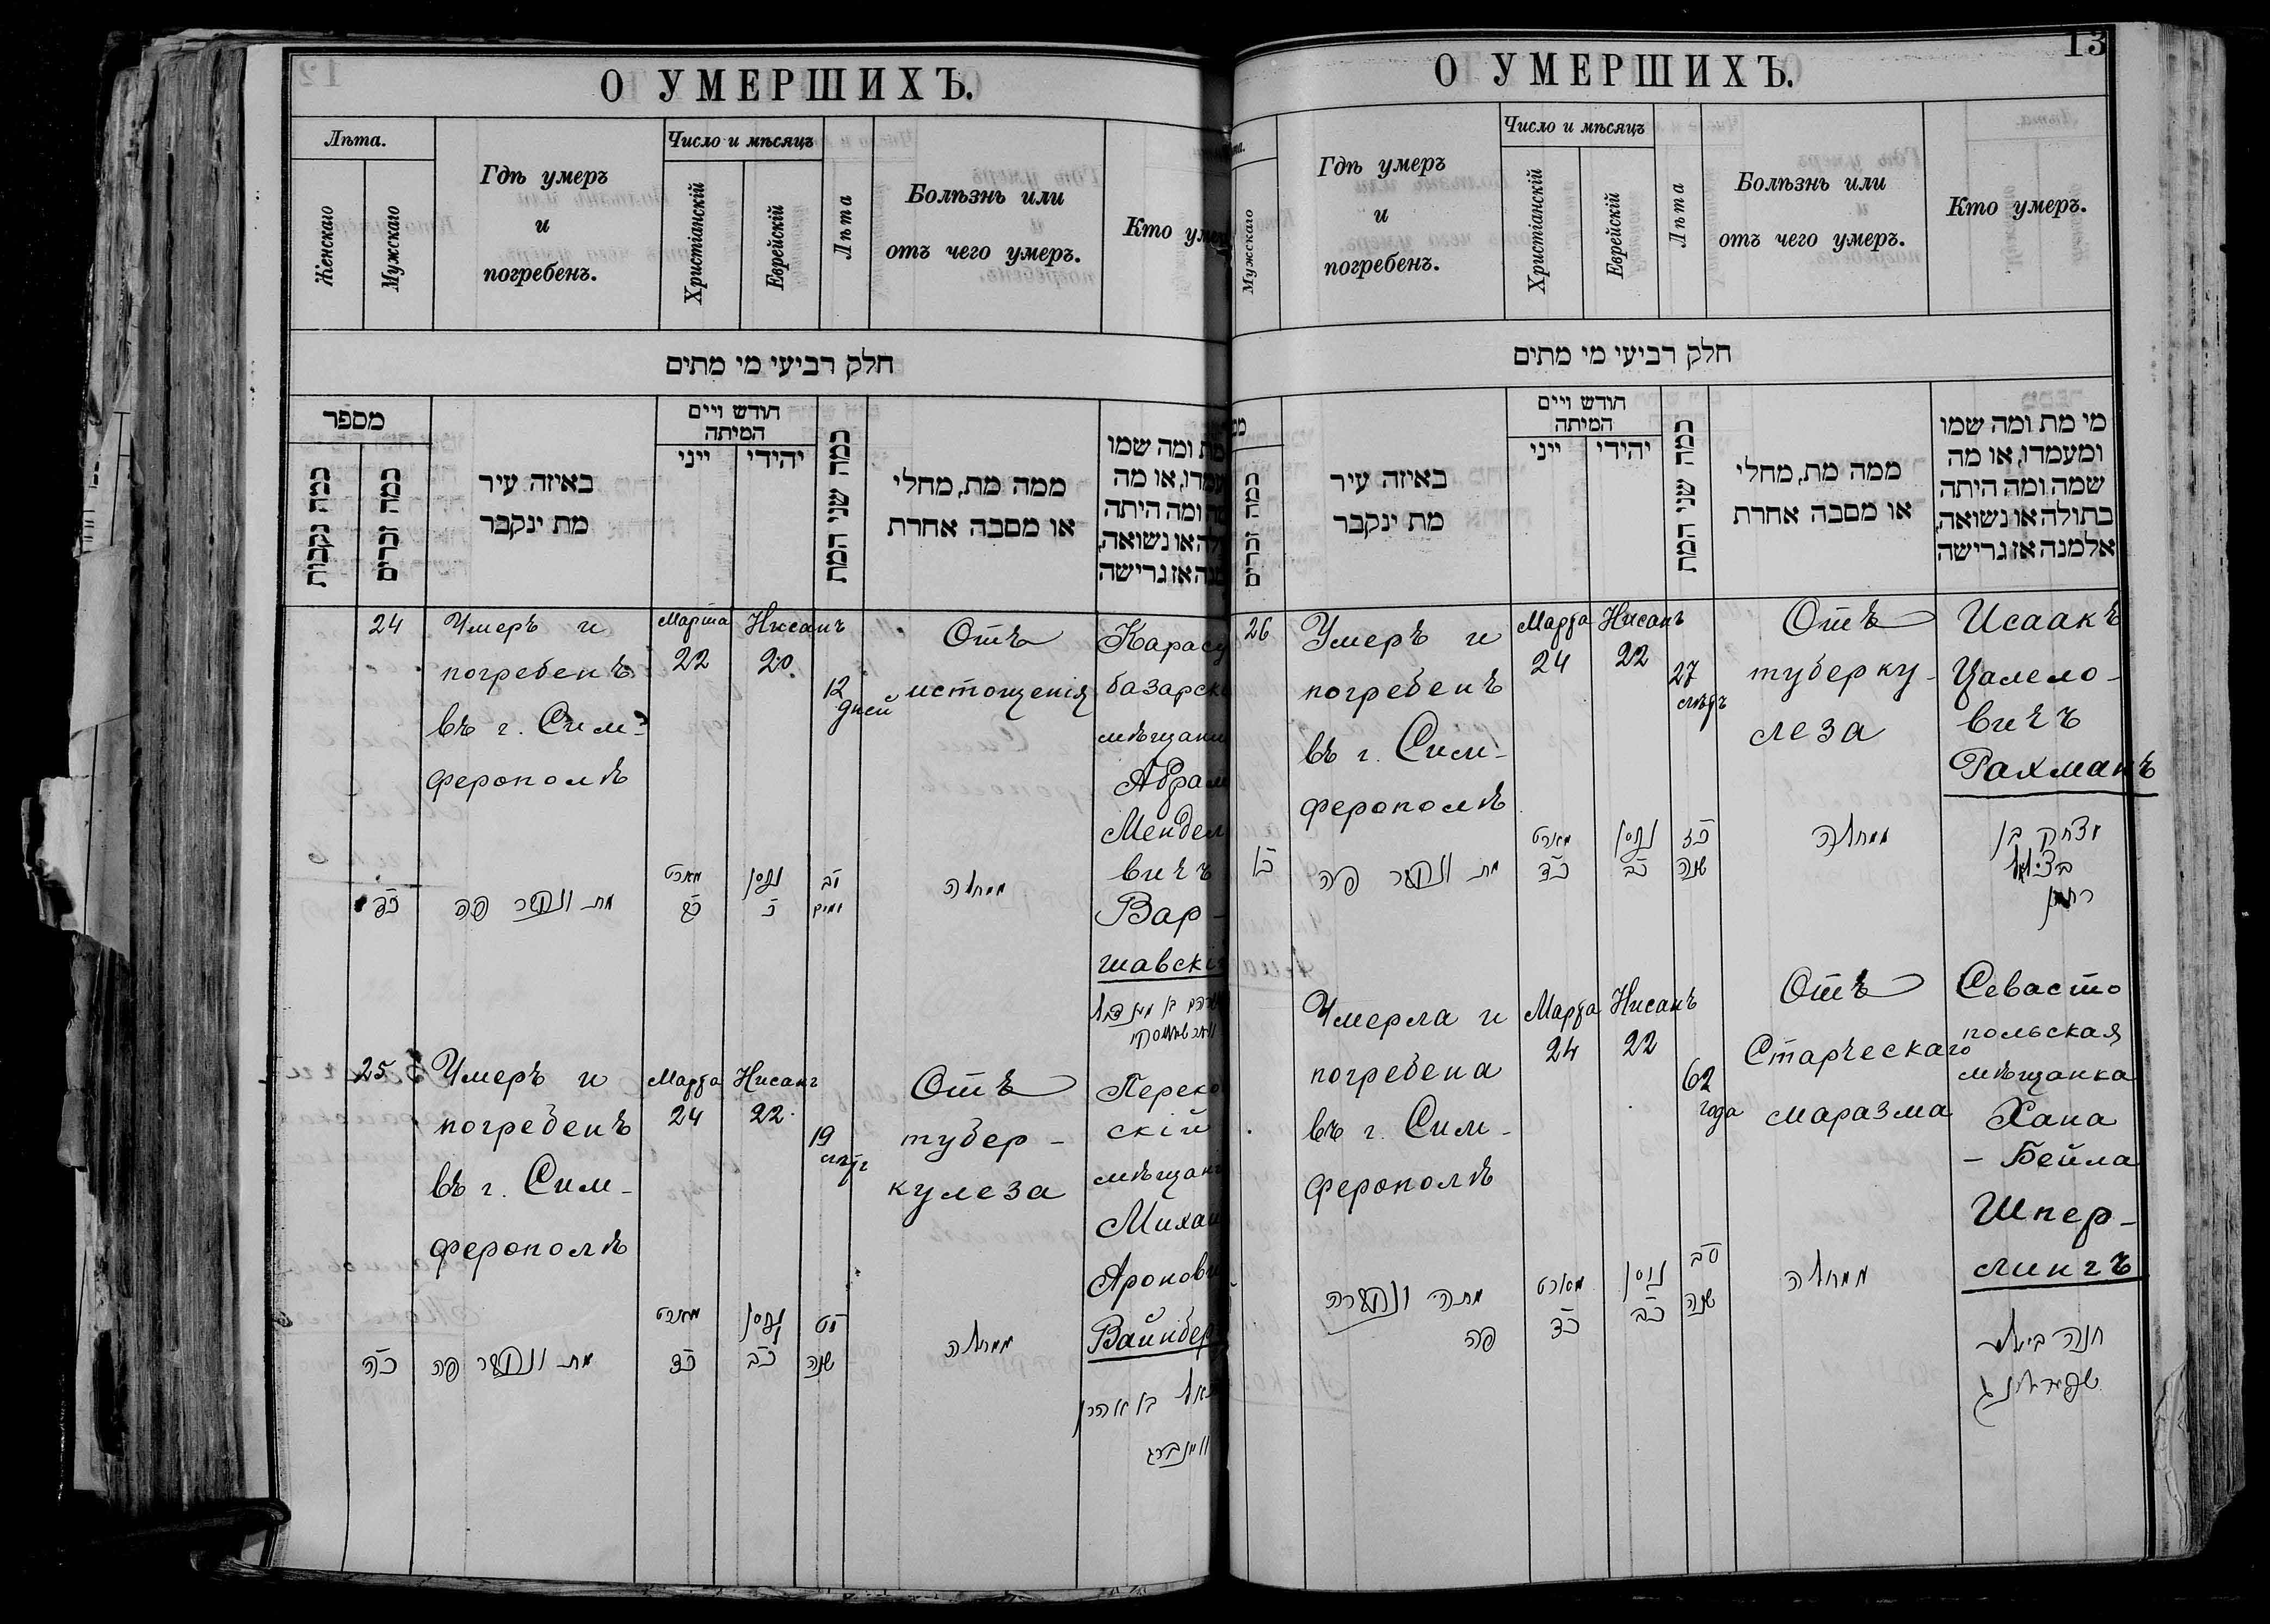 О УМЕРШИХЪ.
Лѣта.
Женскаго
Мужскаго
Гдѣ умеръ
и
погребенъ.
Число и мѣсяцъ
Христіанскій
Еврейскій
Лѣта
Болѣзнь или
отъ чего умеръ.
Кто умер
חלק רביעי מי מתים
מספר
כמה נקבות
כמה זכרים
באיזה עיר
מת ינקבר
חודש ויים
המיתה
ייני
יהידי
כמה שני המת
ממה מת, מחלי
או מסבה אחרת
מת ומה שמו
עמדו, או מה
ומה היתה
לה או נשואה,
נה אז גרישה
24
Умеръ и
погребенъ
въ г. Сим-
ферополѣ
Марта
22
Нисанъ
20
12
дней
Отъ
истощенія
Карасу
базарск
мѣщани
Абрам
Мендел
вичъ
Вар-
шавскі
כד
מת ונקבר פה
מארט
כב
ניסן
כ
יב
ימים
ממחלה
אברהם בן מענדל
25
Умеръ и
погребенъ
въ г. Сим-
ферополѣ
Марта
24
Нисанъ
22
19
лѣтъ
Отъ
тубер-
кулеза
Переко
скій
мѣщани
Михаи
Аронови
Вайнбер
כה
מת ונקבר פה
מארט
כד
ניסן
כב
יט
שנה
ממחלה
בן אהרן
וויינבערג
13
О УМЕРШИХЪ.
та.
Мужскаго
Гдѣ умеръ
и
погребенъ.
Число и мѣсяцъ
Христіанскій
Еврейскій
Лѣта
Болѣзнь или
отъ чего умеръ.
Кто умеръ.
חלק רביעי מי מתים
כמה זכרים
באיזה עיר
מת ינקבר
חודש ויים
המיתה
ייני
יהידי
כמה שני המת
ממה מת, מחלי
או מסבה אחרת
מי מת ומה שמו
ומעמדו, או מה
שמה ומה היתה
בתולה או נשואה,
אלמנה אז גרישה
26
Умеръ и
погребенъ
въ г. Сим-
ферополѣ
Марта
24
Нисанъ
22
27
лѣтъ
Отъ
туберку-
леза
Исаакъ
Цалело-
вичъ
Рахманъ
כו
מת ונקבר פה
מארט
כד
ניסן
כב
כז
שנה
ממחלה
יצחק בן
בצלאל
רחמן
Умерла и
погребена
въ г. Сим-
ферополѣ
Марта
24
Нисанъ
22
62
года
Отъ
Старческаго
маразма
Севасто
польская
мѣщанка
Хана
- Бейла
Шпер-
лингъ
מתה ונקברה
פה
מארט
כד
ניסן
כב
סב
שנה
ממחלה
חנה ביילא
שפערלינג